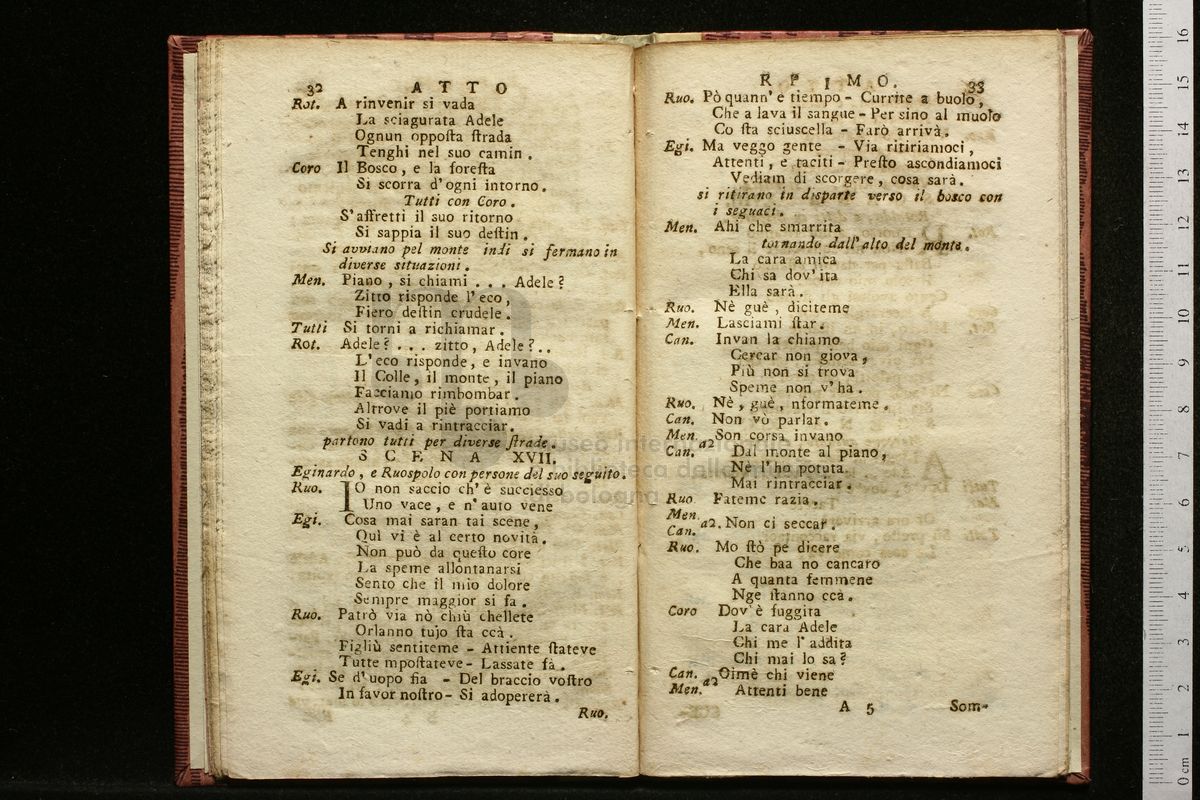 32 ATTO
Rot. A rinvenir si vada
La sciagurata Adele
Ognun opposta strada
Tenghi nel suo camin.
Coro Il Bosco, e la foresta
Si scorra d'ogni intorno.
Tutti con Coro.
S'affretti il suo ritorno
Si sappia il suo destin.
Si avviano pel monte indi si fermano in
diverse situazioni.
Men. Piano, si chiami... Adele?
Zitto risponde l'eco,
Fiero destin crudele.
Tutti Si torni a richiamar.
Rot. Adele?... zitto, Adele?..
L'eco risponde, e invano
Il Colle, il monte, il piano
Facciamo rimbombar.
Altrove il piè portiamo
Si vadi a rintracciar.
partono tutti per diverse strade.
SCENA XVII.
Eginardo, e Ruospolo con persone del suo seguito.
Ruo. IO non saccio ch'è succiesso
Uno vace, e n'auto vene
Egi. Cosa mai saran tai scene,
Quì vi è al certo novità.
Non può da questo core
La speme allontanarsi
Sento che il mio dolore
Sempre maggior si fa.
Ruo. Patrò via nò chiù chellete
Orlanno tujo sta ccà.
Figliù sentiteme - Attiente stateve
Tutte mpostateve - Lassate fà.
Egi. Se d'uopo fia - Del braccio vostro
In favor nostro - Si adopererà.
Ruo.
RPIMO. 33
Ruo. Pò quann'e tiempo - Currite a buolo,
Che a lava il sangue - Per sino al muolo
Co sta sciuscella - Farò arrivà.
Egi. Ma veggo gente - Via ritiriamoci,
Attenti, e taciti - Presto ascondiamoci
Vediam di scorgere, cosa sarà.
si ritirano in disparte verso il bosco con
i seguaci.
Men. Ahi che smarrita
tornando dall'alto del monte.
La cara amica
Chi sa dov'ita
Ella sarà.
Ruo. Nè guè, diciteme
Men. Lasciami star.
Can. Invan la chiamo
Cercar non giova,
Più non si trova
Speme non v'ha.
Ruo. Nè, guè, nformateme.
Can. Non vò parlar.
Men. a2 Son corsa invano
Can. Dal monte al piano,
Nè l'ho potuta
Mai rintracciar.
Ruo Fateme razia.
Men.
Can. a2. Non ci seccar.
Ruo. Mo stò pe dicere
Che baa no cancaro
A quanta femmene
Nge stanno ccà.
Coro Dov'è fuggita
La cara Adele
Chi me l'addita
Chi mai lo sa?
Can. a2 Oimè chi viene
Men. Attenti bene
A 5 Som-